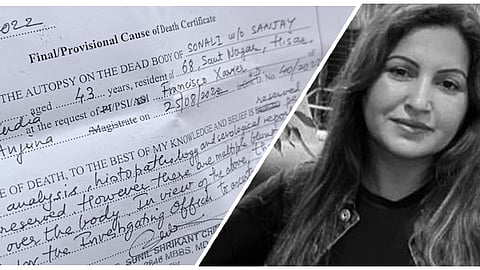 2022
Final/Provisional Cause of Death Certificate
THE AUTOPSY ON THE DEAD BODY OF SONALI w/o SANJAY
aged 43 years, resident of 68, Sant Nagar, Hisar,
India at the request of PI/PSI/ASI Francisco Xavier
Anjuna Magistrate on 25/08/2022 D. No. 40/2022
OF DEATH, TO THE BEST OF MY KNOWLEDGE AND BELIEF IS reserved
analysis, histopathology and serological report
reserved However there are multiple blunt
over the body. In view of the above, the
for the Investigating Officer to
SUNIL SHRIKANT
2846 MBBS, MD